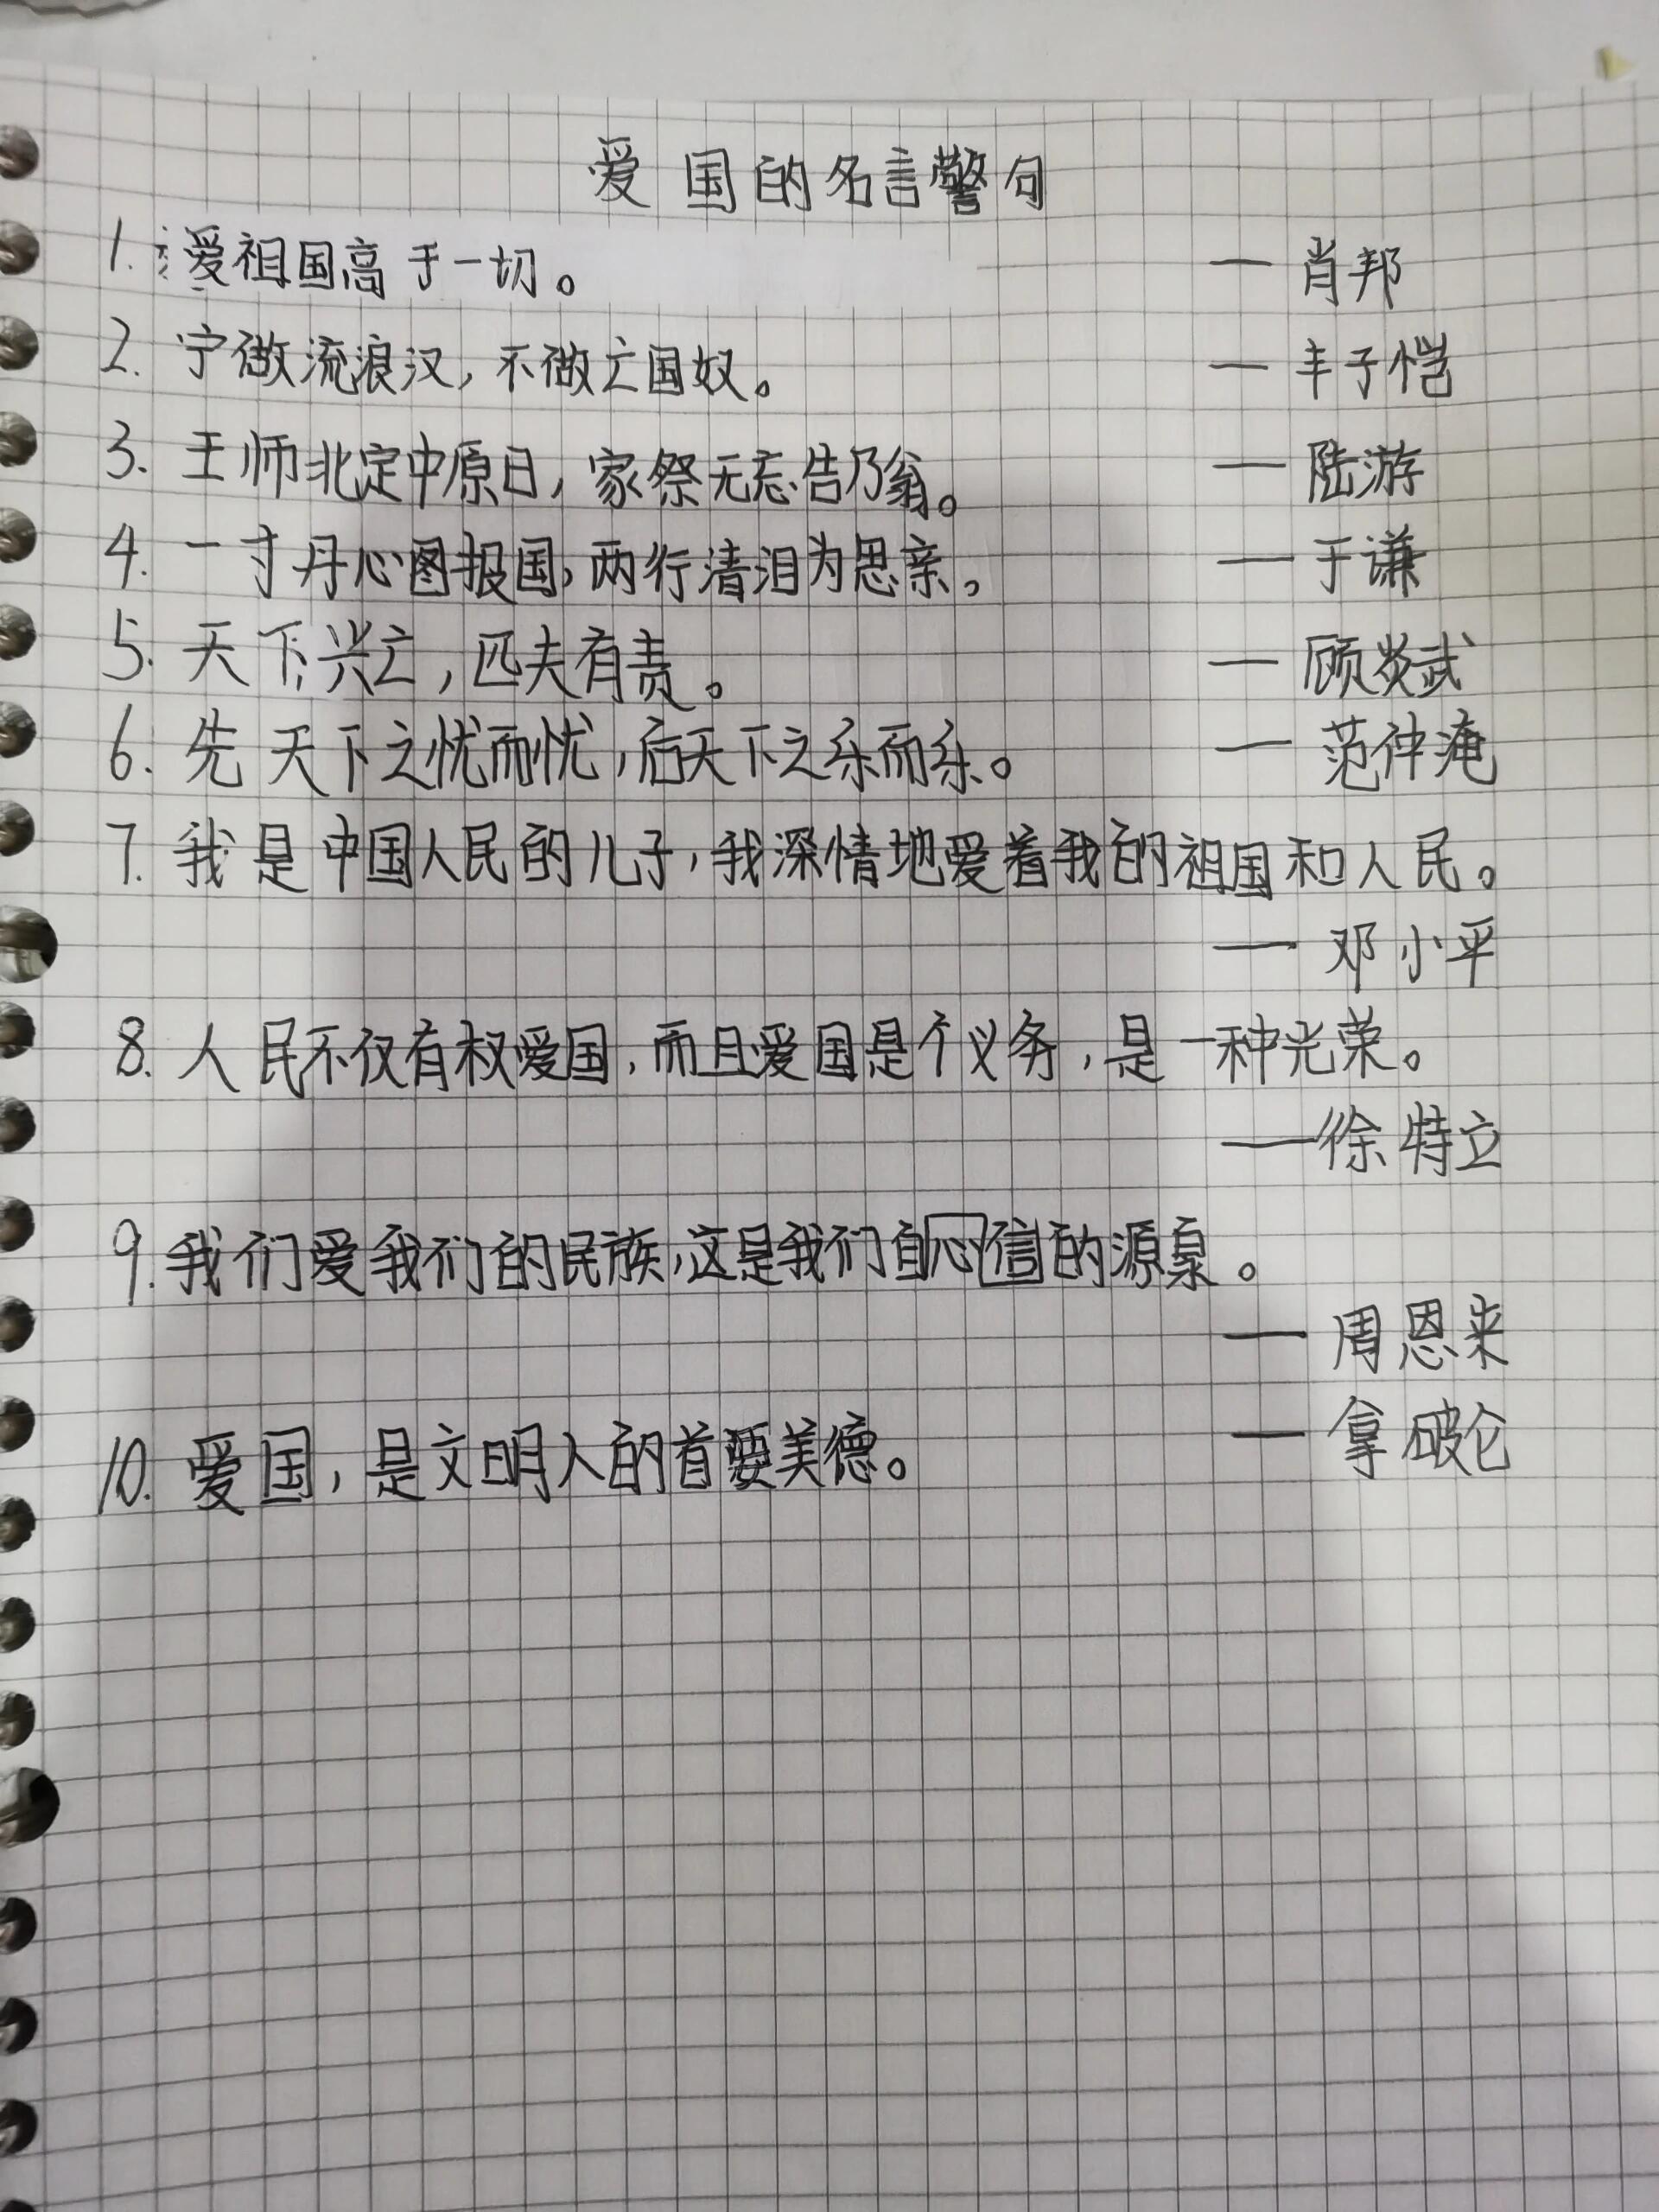 爱国的名言警句
1. 爱祖国高于一切。 — 肖邦
2. 宁做流浪汉,不做亡国奴。 — 丰子恺
3. 王师北定中原日,家祭无忘告乃翁。 — 陆游
4. 一寸丹心图报国,两行清泪为思亲。 — 于谦
5. 天下兴亡,匹夫有责。 — 顾炎武
6. 先天下之忧而忧,后天下之乐而乐。 — 范仲淹
7. 我是中国人民的儿子,我深情地爱着我的祖国和人民。
— 邓小平
8. 人民不仅有权爱国,而且爱国是个义务,是一种光荣。
— 徐特立
9. 我们爱我们的民族,这是我们自心信的源泉。
— 周恩来
10. 爱国,是文明人的首要美德。 — 拿破仑